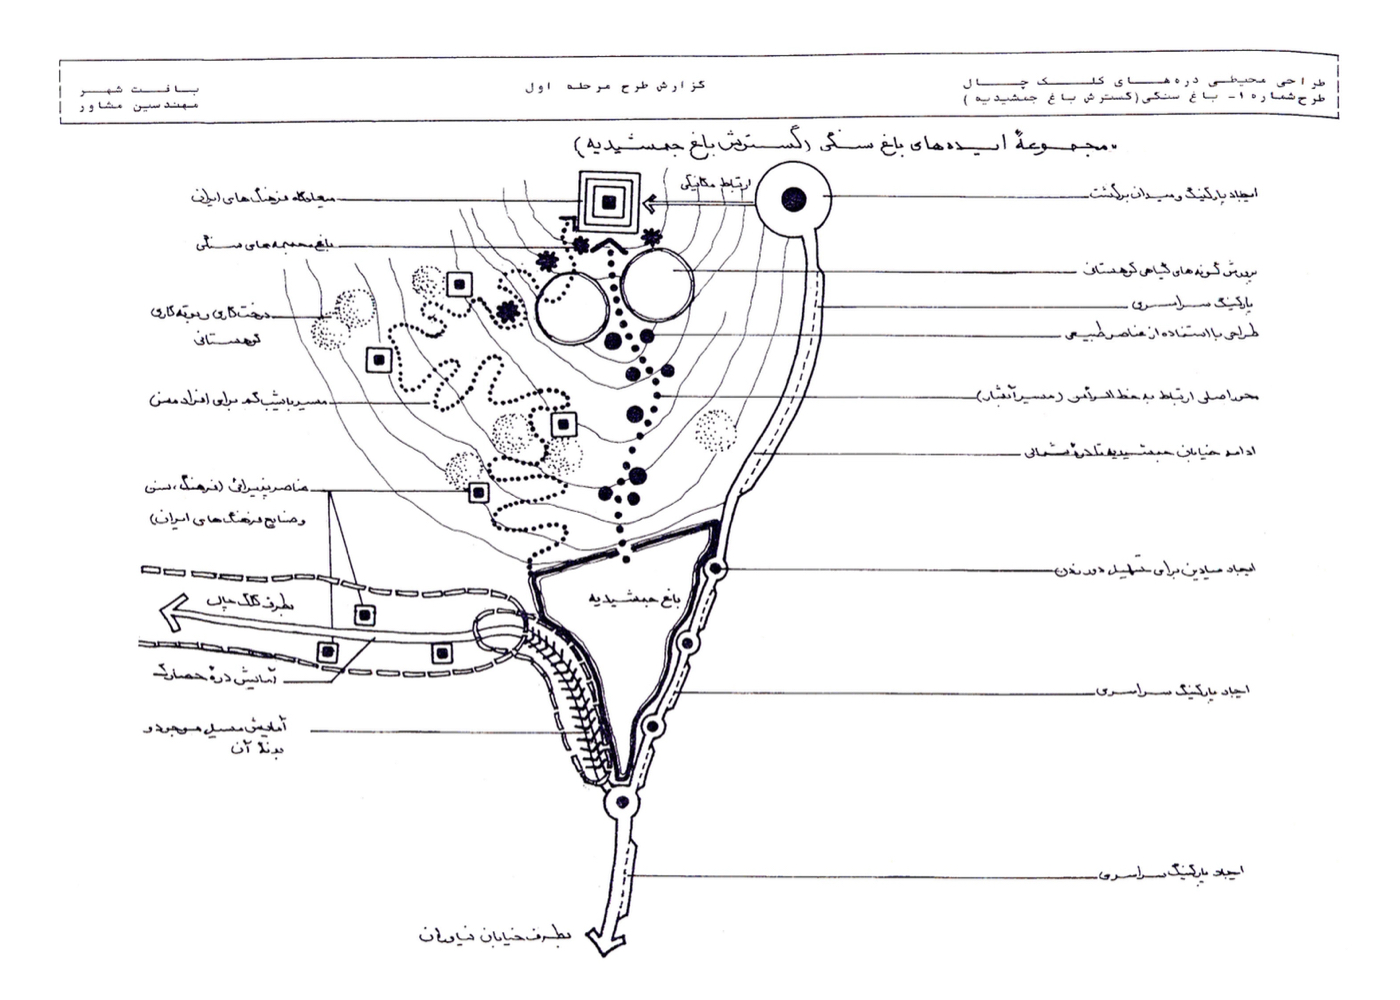 طراحی محیطی دره‌های کلک چال
طرح شماره ۱- باغ سنگی (گسترش باغ جمشیدیه)
گزارش طرح مرحله اول
بافت شهر
مهندسین مشاور
مجموعهٔ ایده‌های باغ سنگی (گسترش باغ جمشیدیه)
ارتباط مکانیکی
ایجاد پارکینگ و میدان برگشت
پرورش گونه‌های گیاهی کوهستان
پارکینگ سراسری
طراحی با استفاده از عناصر طبیعی
محور اصلی ارتباط به خط الرأس (مسیر آبشار)
ادامه خیابان جمشیدیه تا درهٔ شمالی
ایجاد میادین برای تسهیل دور زدن
ایجاد پارکینگ سراسری
ایجاد پارکینگ سراسری
میعادگاه فرهنگ‌های ایران
باغ مجسمه‌های سنگی
درختکاری و بوته‌کاری
کوهستانی
مسیر با شیب کم برای افراد مسن
عناصر پذیرائی (فرهنگ، سنن
و صنایع فرهنگ‌های ایران)
بطرف کلک چال
باغ جمشیدیه
آمایش درهٔ حصارک
آمایش مسیل موجود و
بدنهٔ آن
بطرف خیابان نیاوران